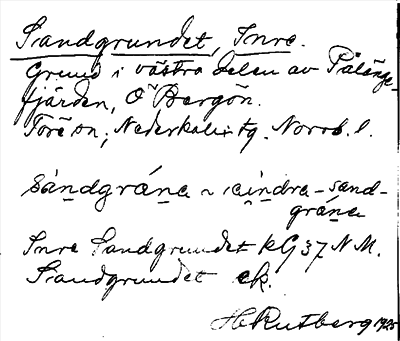 Sandgrundet, Inre.
Grund i västra delen av Pålänge-
fjärden, O Bergön.
Töre sn, Nederkalix tg. Norrb. l.
sàndgrána ~ indra-sand-
grána
Inre Sandgrundet KG 37 N M.
Sandgrundet ek.
H Rutberg 1925